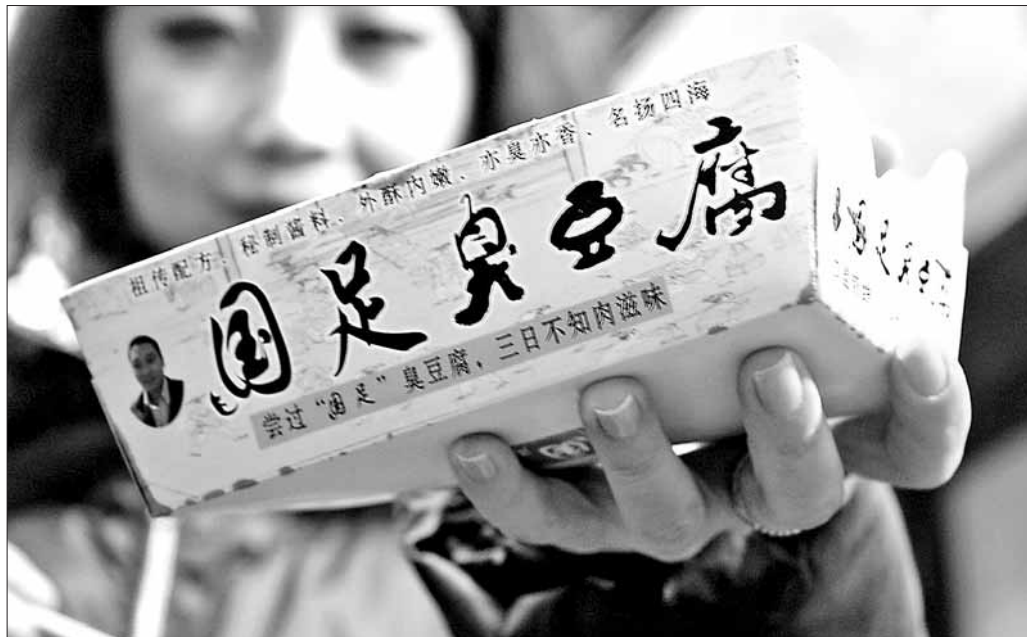 祖传配方、秘制酱料、外酥内嫩、亦臭亦香、名扬四海
国足臭豆腐
尝过“国足”臭豆腐，三日不知肉滋味